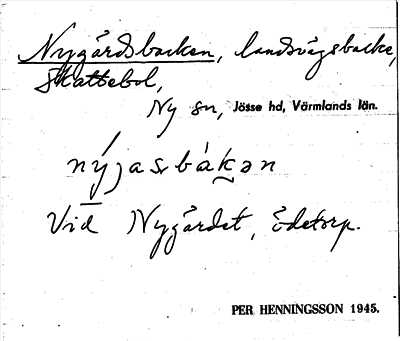 Nygårdsbacken, landsvägsbacke,
Skattebol,
Ny sn, Jösse hd, Värmlands län.
nýjasbàkən
Vid Nygårdet, ödetorp.
PER HENNINGSSON 1945.